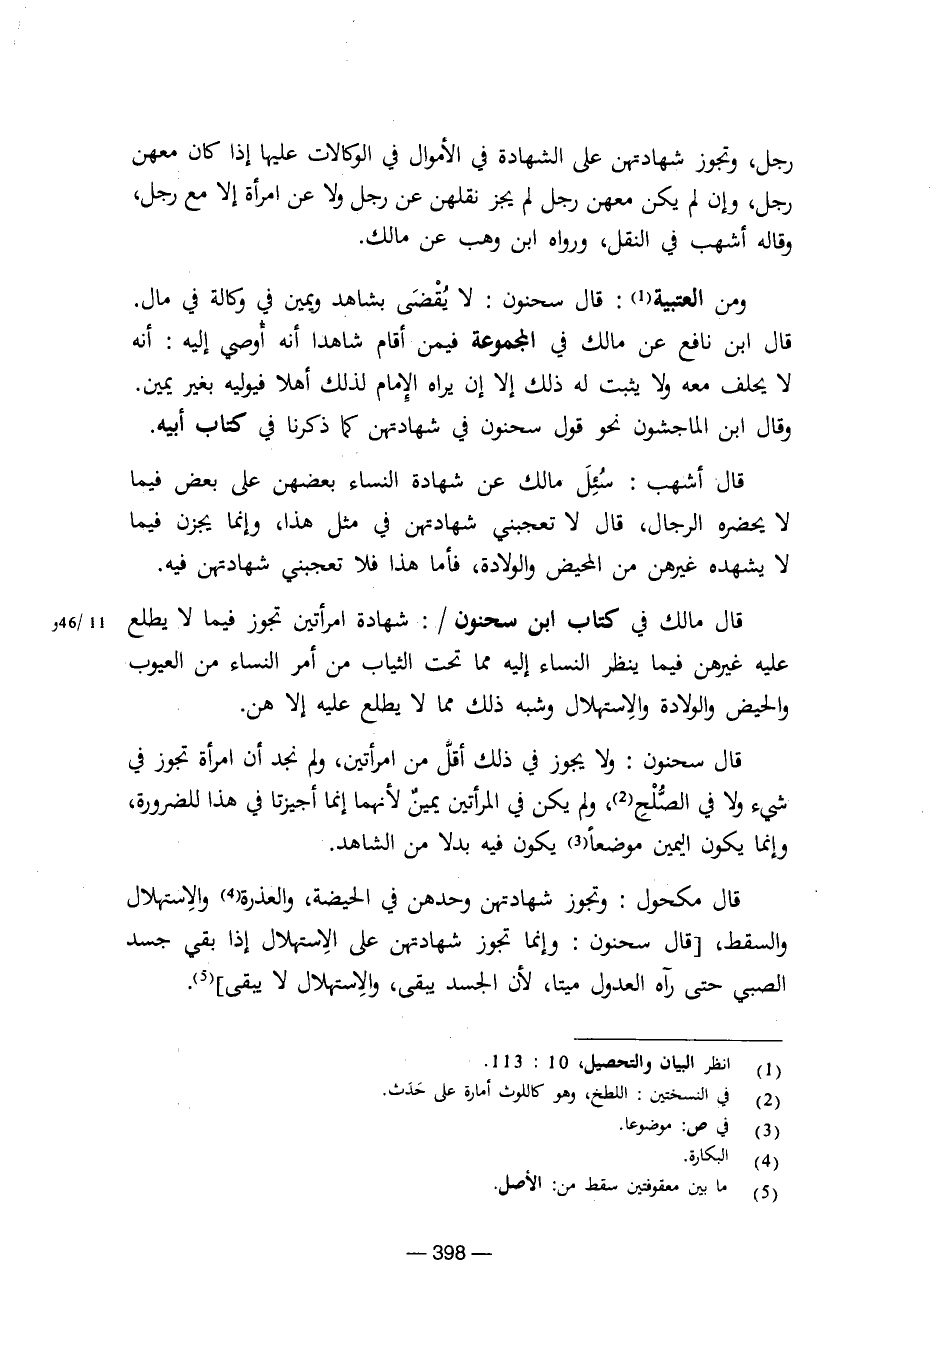 رجل، وتجوز شهادتهن على الشهادة في الأموال في الوكالات عليها إذا كان معهن
رجل، وإن لم يكن معهن رجل لم يجز نقلهن عن رجل ولا عن امرأة إلا مع رجل،
وقاله أشهب في النقل، ورواه ابن وهب عن مالك.
ومن العتبية(1) : قال سحنون : لا يُقْضَى بشاهد ويمين في وكالة في مال.
قال ابن نافع عن مالك في المجموعة فيمن أقام شاهدا أنه أوصي إليه : أنه
لا يحلف معه ولا يثبت له ذلك إلا إن يراه الإمام لذلك أهلا فيوليه بغير يمين.
وقال ابن الماجشون نحو قول سحنون في شهادتهن كما ذكرنا في كتاب أبيه.
قال أشهب : سُئِلَ مالك عن شهادة النساء بعضهن على بعض فيما
لا يحضره الرجال، قال لا تعجبني شهادتهن في مثل هذا، وإنما يجزن فيما
لا يشهده غيرهن من المحيض والولادة، فأما هذا فلا تعجبني شهادتهن فيه.
قال مالك في كتاب ابن سحنون / : شهادة امرأتين تجوز فيما لا يطلع 11 /46و
عليه غيرهن فيما ينظر النساء إليه مما تحت الثياب من أمر النساء من العيوب
والحيض والولادة والاِستهلال وشبه ذلك مما لا يطلع عليه إلا هن.
قال سحنون : ولا يجوز في ذلك أقلّ من امرأتين، ولم نجد أن امرأة تجوز في
شيء ولا في الصُّلْحِ(2)، ولم يكن في المرأتين يمينٌ لأنهما إنما أجيزتا في هذا للضرورة،
وإنما يكون اليمين موضعاً(3) يكون فيه بدلا من الشاهد.
قال مكحول : وتجوز شهادتهن وحدهن في الحيضة، والعذرة(4) والاِستهلال
والسقط، [قال سحنون : وإنما تجوز شهادتهن على الاِستهلال إذا بقي جسد
الصبي حتى رآه العدول ميتا، لأن الجسد يبقى، والاِستهلال لا يبقى](5).
(1) انظر البيان والتحصيل، 10 : 113.
(2) في النسختين : اللطخ، وهو كاللوث أمارة على حَدَث.
(3) في ص: موضوعا.
(4) البكارة.
(5) ما بين معقوفتين سقط من: الأصل.
— 398 —